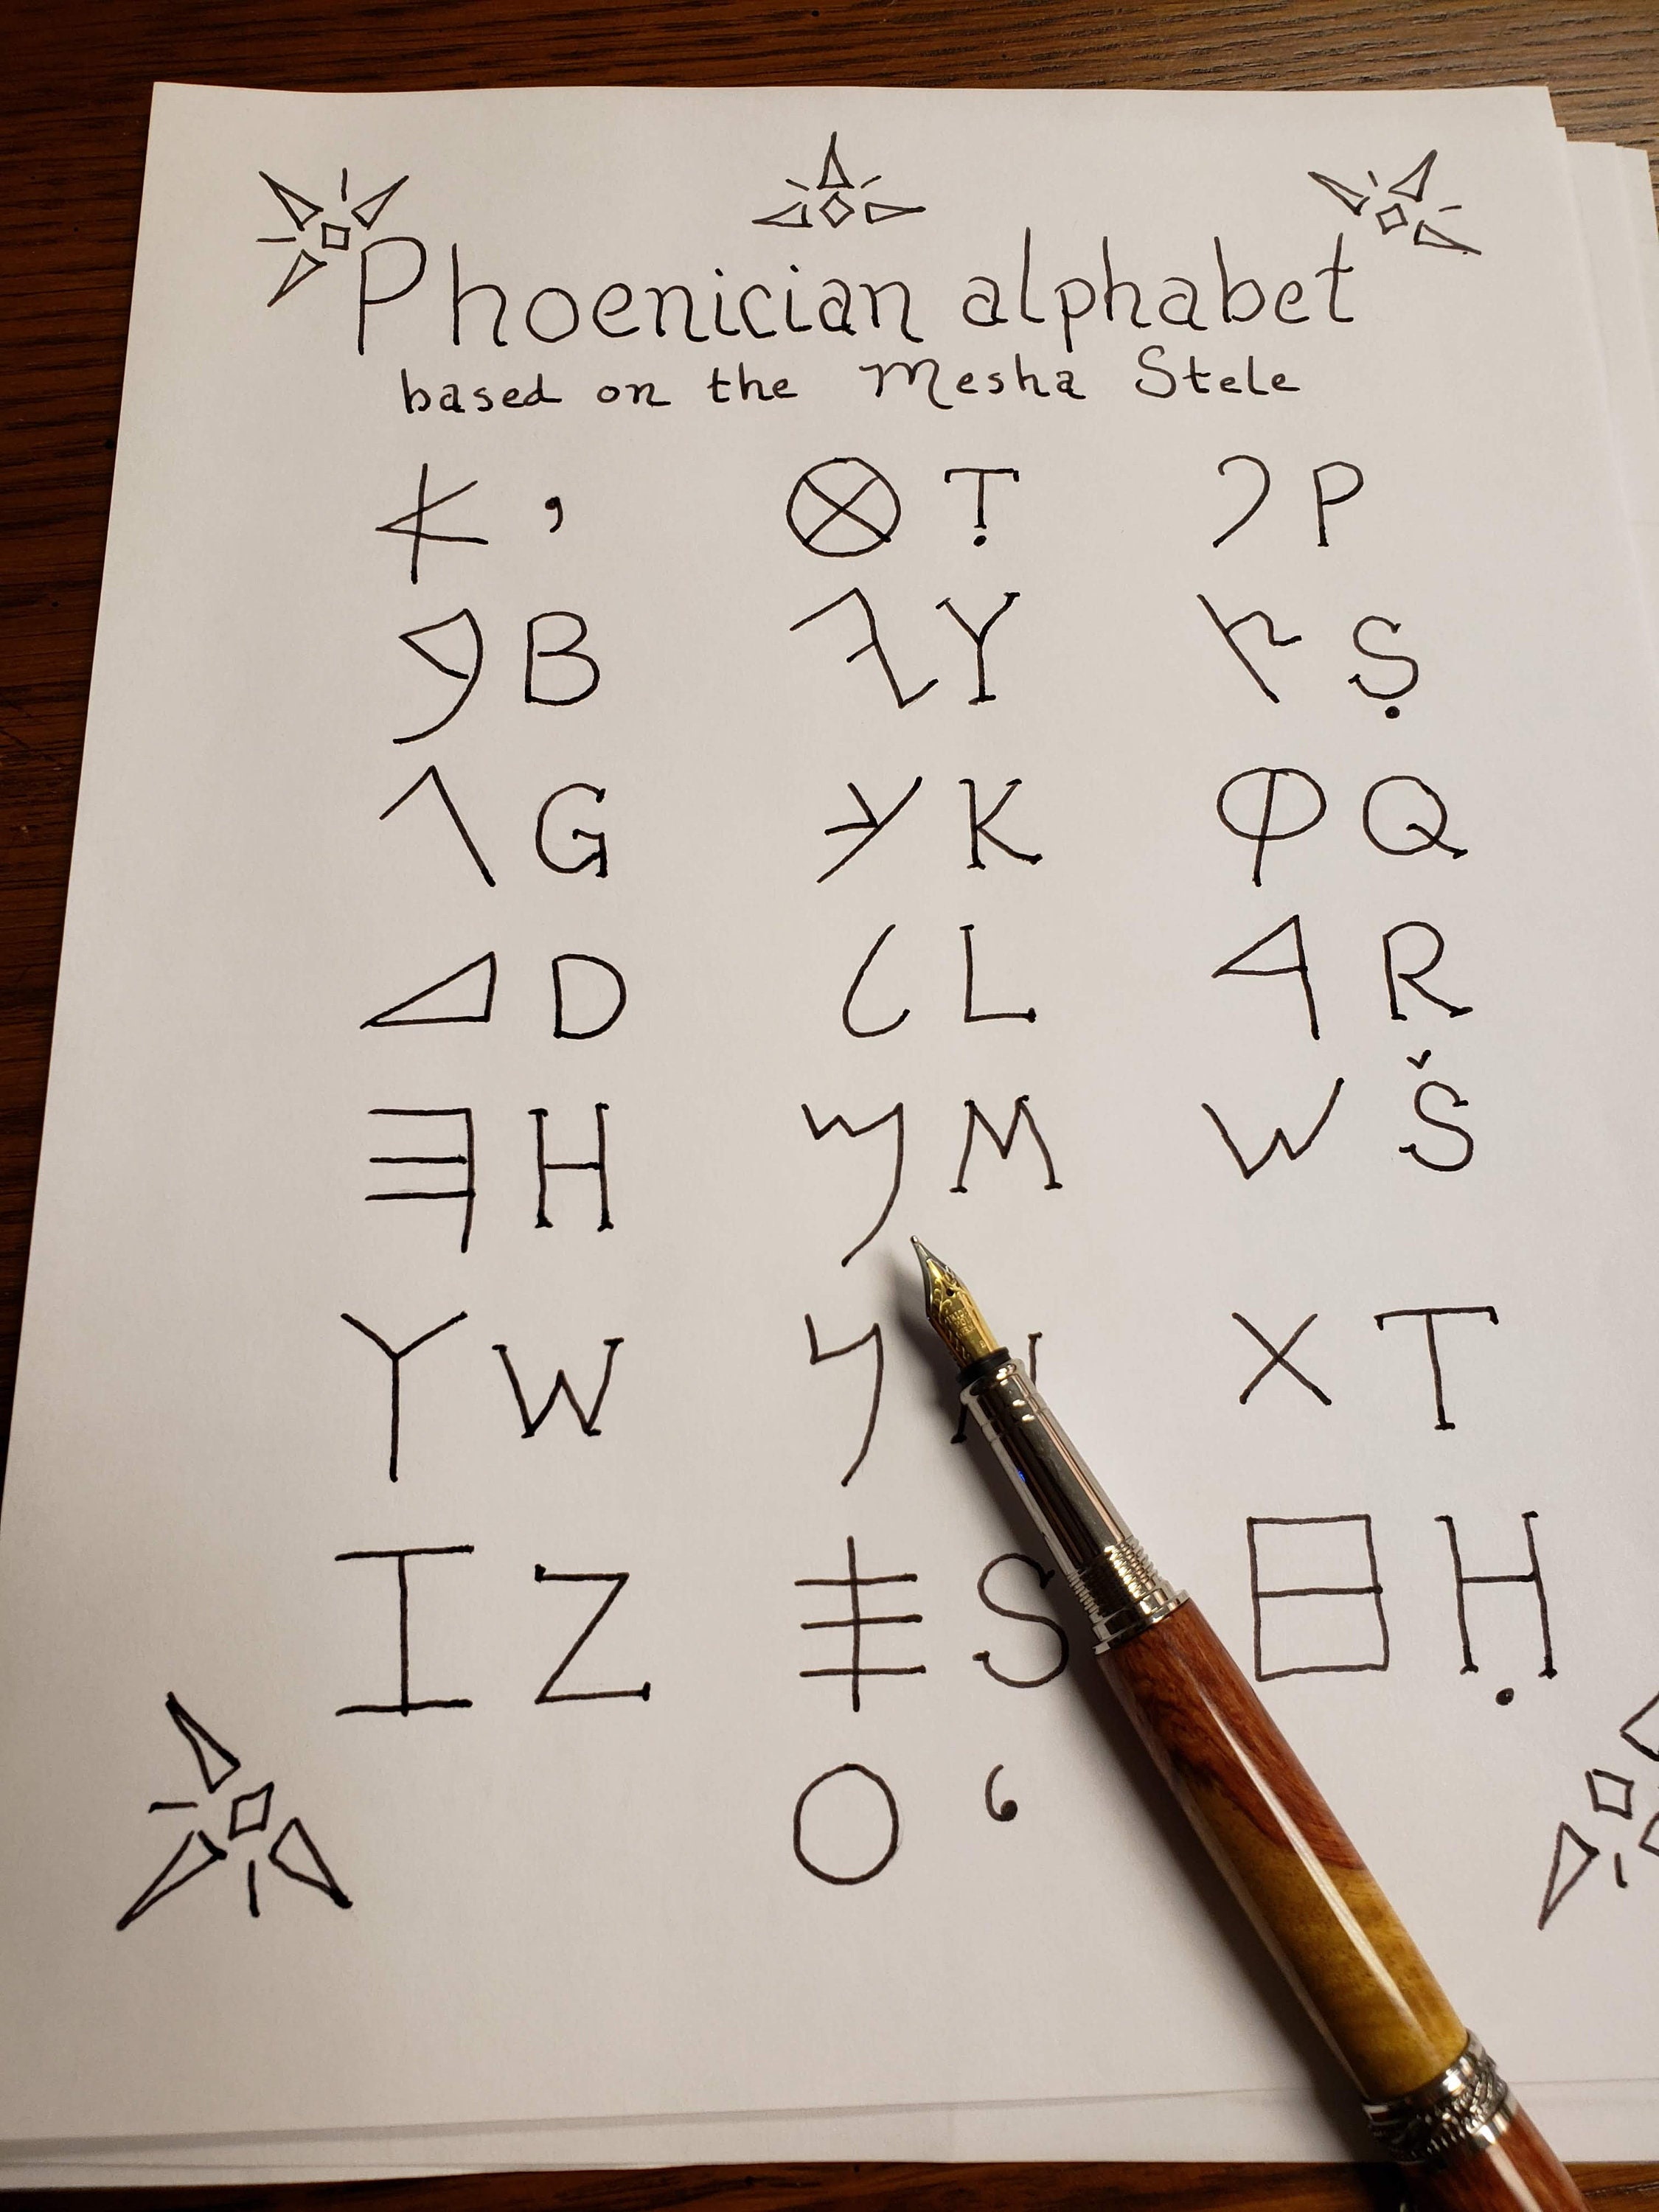 Phoenician alphabet
based on the Mesha Stele
𐤀 ʾ 𐤈 Ṭ 𐤐 P
𐤁 B 𐤉 Y 𐤑 Ṣ
𐤂 G 𐤊 K 𐤒 Q
𐤃 D 𐤋 L 𐤓 R
𐤄 H 𐤌 M 𐤔 Š
𐤅 W 𐤍 N 𐤕 T
𐤆 Z 𐤎 S 𐤇 Ḥ
𐤏 ʿ